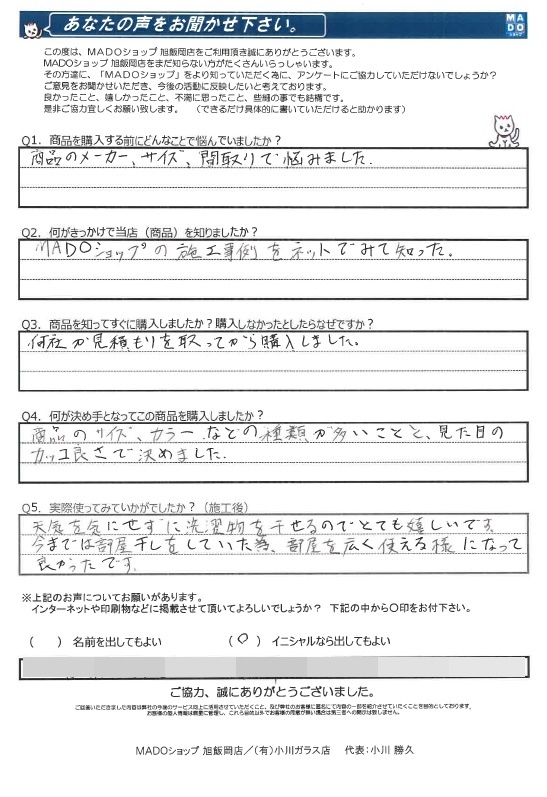 あなたの声をお聞かせ下さい。
MADO
ショップ
この度は、MADOショップ 旭飯岡店をご利用頂き誠にありがとうございます。
MADOショップ 旭飯岡店をまだ知らない方がたくさんいらっしゃいます。
その方達に、「MADOショップ」をより知っていただく為に、アンケートにご協力していただけないでしょうか？
ご意見をお聞かせいただき、今後の活動に反映したいと考えております。
良かったこと、嬉しかったこと、不満に思ったこと、些細の事でも結構です。
是非ご協力宜しくお願い致します。 （できるだけ具体的に書いていただけると助かります）
Q1．商品を購入する前にどんなことで悩んでいましたか？
商品のメーカー、サイズ、間取りで悩みました.
Q2．何がきっかけで当店（商品）を知りましたか？
MADOショップの施工事例をネットでみて知った。
Q3．商品を知ってすぐに購入しましたか？購入しなかったとしたらなぜですか？
何社か見積もりを取ってから購入しました。
Q4．何が決め手となってこの商品を購入しましたか？
商品のサイズ、カラーなどの種類が多いことと、見た目の
カッコ良さで決めました.
Q5．実際使ってみていかがでしたか？（施工後）
天気を気にせずに洗濯物を干せるのでとても嬉しいです.
今までは部屋干しをしていた為、部屋を広く使える様になって
良かったです.
※上記のお声についてお願いがあります。
インターネットや印刷物などに掲載させて頂いてよろしいでしょうか？ 下記の中から○印をお付下さい。
（　）名前を出してもよい （○）イニシャルなら出してもよい
ご協力、誠にありがとうございました。
MADOショップ 旭飯岡店／（有）小川ガラス店 代表：小川 勝久